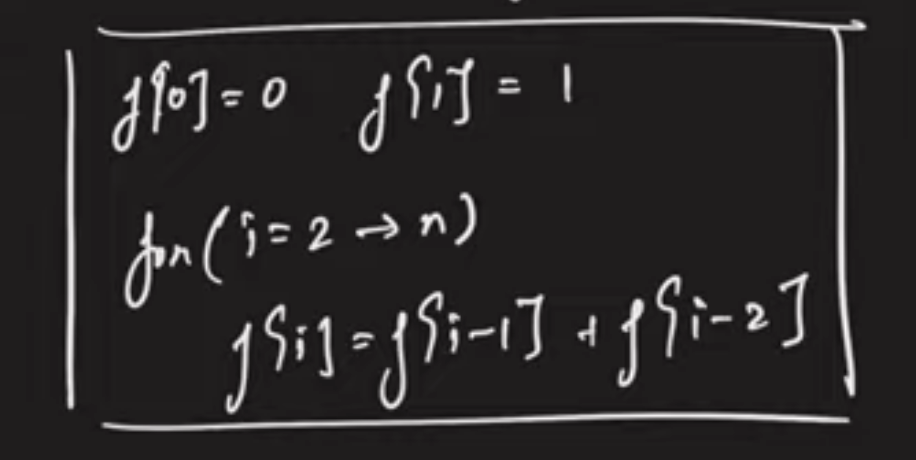 f[0] = 0 f[1] = 1
for(i = 2 → n)
f[i] = f[i-1] + f[i-2]